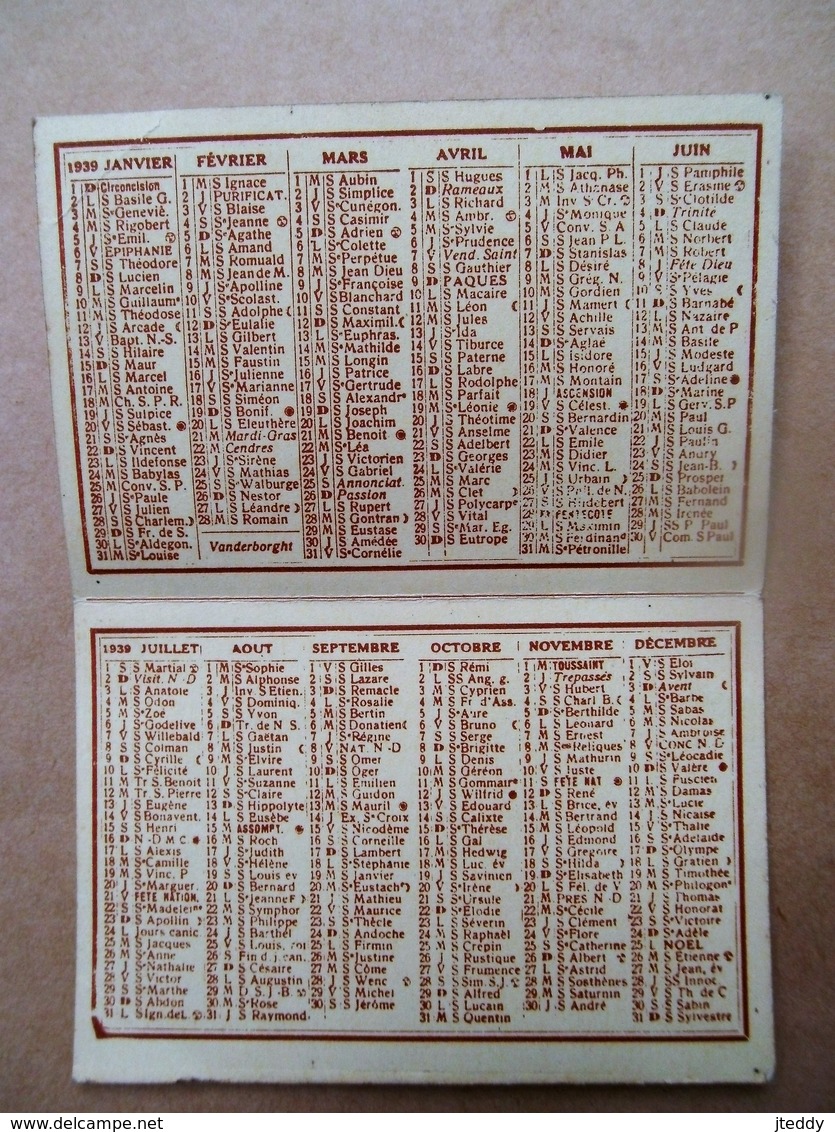 1939 JANVIER
1 D Circoncision
2 L S Basile G.
3 M Sᵉ Geneviè.
4 M S Rigobert
5 J Sᵉ Emil.
6 V EPIPHANIE
7 S S Théodore
8 D S Lucien
9 L S Marcelin
10 M S Guillaumᵉ
11 M S Théodose
12 J S Arcade
13 V Bapt. N.-S.
14 S S Hilaire
15 D S Maur
16 L S Marcel
17 M S Antoine
18 M Ch. S. P. R.
19 J S Sulpice
20 V S Sébast.
21 S Sᵉ Agnès
22 D S Vincent
23 L S Ildefonse
24 M S Babylas
25 M Conv. S. P.
26 J Sᵉ Paule
27 V S Julien
28 S S Charlem.
29 D S Fr. de S.
30 L Sᵉ Aldegon.
31 M Sᵉ Louise
FÉVRIER
1 M S Ignace
2 J PURIFICAT.
3 V S Blaise
4 S Sᵉ Jeanne
5 D Sᵉ Agathe
6 L S Amand
7 M S Romuald
8 M S Jean de M.
9 J Sᵉ Apolline
10 V Sᵉ Scolast.
11 S S Adolphe
12 D Sᵉ Eulalie
13 L S Gilbert
14 M S Valentin
15 M S Faustin
16 J Sᵉ Julienne
17 V Sᵉ Marianne
18 S S Siméon
19 D S Bonif.
20 L S Eleuthère
21 M Mardi-Gras
22 M Cendres
23 J Sᵉ Sirène
24 V S Mathias
25 S Sᵉ Walburge
26 D S Nestor
27 L S Léandre
28 M S Romain
Vanderborght
MARS
1 M S Aubin
2 J S Simplice
3 V Sᵉ Cunégon.
4 S S Casimir
5 D S Adrien
6 L Sᵉ Colette
7 M Sᵉ Perpétue
8 M S Jean Dieu
9 J Sᵉ Françoise
10 V S Blanchard
11 S S Constant
12 D S Maximil.
13 L S Euphras.
14 M Sᵉ Mathilde
15 M S Longin
16 J S Patrice
17 V Sᵉ Gertrude
18 S S Alexandrᵉ
19 D S Joseph
20 L S Joachim
21 M S Benoit
22 M Sᵉ Léa
23 J S Victorien
24 V S Gabriel
25 S Annonciat.
26 D Passion
27 L S Rupert
28 M S Gontran
29 M S Eustase
30 J S Amédée
31 V Sᵉ Cornélie
AVRIL
1 S S Hugues
2 D Rameaux
3 L S Richard
4 M S Ambr.
5 M Sᵉ Sylvie
6 J Sᵉ Prudence
7 V Vend. Saint
8 S S Gauthier
9 D PAQUES
10 L S Macaire
11 M S Léon
12 M S Jules
13 J Sᵉ Ida
14 V S Tiburce
15 S S Paterne
16 D S Labre
17 L S Rodolphe
18 M S Parfait
19 M Sᵉ Léonie
20 J S Théotime
21 V S Anselme
22 S S Adelbert
23 D S Georges
24 L Sᵉ Valérie
25 M S Marc
26 M S Clet
27 J S Polycarpᵉ
28 V S Vital
29 S Sᵉ Mar. Eg.
30 D S Eutrope
MAI
1 L S Jacq. Ph.
2 M S Athanase
3 M Inv S Cr.
4 J Sᵉ Monique
5 V Conv. S. A
6 S S Jean P L.
7 D S Stanislas
8 L S Désiré
9 M S Grég. N.
10 M S Gordien
11 J S Mamert
12 V S Achille
13 S S Servais
14 D Sᵉ Aglaé
15 L S Isidore
16 M S Honoré
17 M S Montain
18 J ASCENSION
19 V S Célest.
20 S S Bernardin
21 D S Valence
22 L S Emile
23 M S Didier
24 M S Vinc. L.
25 J S Urbain
26 V S Phil. de N.
27 S S Hildebert
28 D PENTECOTE
29 L S Maximin
30 M S Ferdinand
31 M Sᵉ Pétronille
JUIN
1 J S Pamphile
2 V S Erasme
3 S Sᵉ Clotilde
4 D Trinité
5 L S Claude
6 M S Norbert
7 M S Robert
8 J Fête Dieu
9 V Sᵉ Pélagie
10 S S Yves
11 D S Barnabé
12 L S Nazaire
13 M S Ant de P
14 M S Basile
15 J S Modeste
16 V S Ludgard
17 S Sᵉ Adeline
18 D Sᵉ Marine
19 L S Gerv. S.P
20 M S Paul
21 M S Louis G.
22 J S Paulin
23 V S Anury
24 S S Jean-B.
25 D S Prosper
26 L S Babolein
27 M S Fernand
28 M S Irénée
29 J SS P. Paul
30 V Com. S Paul
1939 JUILLET
1 S S Martial
2 D Visit. N.-D
3 L S Anatole
4 M S Odon
5 M Sᵉ Zoé
6 J Sᵉ Godelive
7 V S Willebald
8 S S Colman
9 D S Cyrille
10 L Sᵉ Félicité
11 M Tr S. Benoit
12 M Tr S. Pierre
13 J S Eugène
14 V S Bonavent.
15 S S Henri
16 D N-D M C
17 L S Alexis
18 M Sᵉ Camille
19 M S Vinc. P
20 J Sᵉ Marguer.
21 V FÊTE NATION.
22 S Sᵉ Madelein
23 D S Apollin
24 L Jours canic.
25 M S Jacques
26 M Sᵉ Anne
27 J Sᵉ Nathalie
28 V S Victor
29 S Sᵉ Marthe
30 D S Abdon
31 L S Ign. deL
AOUT
1 M Sᵉ Sophie
2 M S Alphonse
3 J Inv. S Etien.
4 V S Dominiq.
5 S S Yvon
6 D Tr. de N S.
7 L S Gaëtan
8 M S Justin
9 M Sᵉ Elvire
10 J S Laurent
11 V Sᵉ Suzanne
12 S Sᵉ Claire
13 D S Hippolyte
14 L S Eusèbe
15 M ASSOMPT.
16 M S Roch
17 J Sᵉ Judith
18 V Sᵉ Hélène
19 S S Louis év
20 D S Bernard
21 L Sᵉ Jeanne F
22 M S Symphor
23 M S Philippe
24 J S Barthél
25 V S Louis, roi
26 S Fin d j. can.
27 D S Césaire
28 L S Augustin
29 M D. S. J-B.
30 M Sᵉ Rose
31 J S Raymond
SEPTEMBRE
1 V S Gilles
2 S S Lazare
3 D S Remacle
4 L Sᵉ Rosalie
5 M S Bertin
6 M S Donatien
7 J Sᵉ Régine
8 V NAT. N-D
9 S S Omer
10 D S Oger
11 L S Emilien
12 M S Guidon
13 M S Mauril
14 J Ex. Sᵉ Croix
15 V S Nicodème
16 S S Corneille
17 D S Lambert
18 L Sᵉ Stéphanie
19 M S Janvier
20 M S Eustach
21 J S Mathieu
22 V S Maurice
23 S Sᵉ Thècle
24 D S Andoche
25 L S Firmin
26 M Sᵉ Justine
27 M S Côme
28 J S Wenc
29 V S Michel
30 S S Jérôme
OCTOBRE
1 D S Rémi
2 L SS Ang. g.
3 M S Cyprien
4 M S Fr d'Ass.
5 J Sᵉ Aure
6 V S Bruno
7 S S Serge
8 D Sᵉ Brigitte
9 L S Denis
10 M S Géréon
11 M S Gommarᵉ
12 J S Wilfrid
13 V S Edouard
14 S S Calixte
15 D Sᵉ Thérèse
16 L S Gal
17 M S Hedwig
18 M S Luc. év
19 J S Savinien
20 V Sᵉ Irène
21 S Sᵉ Ursule
22 D Sᵉ Elodie
23 L S Séverin
24 M S Raphaël
25 M S Crépin
26 J S Rustique
27 V S Frumence
28 S S Sim. S. J
29 D S Alfred
30 L S Lucain
31 M S Quentin
NOVEMBRE
1 M TOUSSAINT
2 J Trepassés
3 V S Hubert
4 S S Charl B.
5 D Sᵉ Berthilde
6 L S Léonard
7 M S Ernest
8 M Sᵉˢ Reliques
9 J S Mathurin
10 V S Juste
11 S FÊTE NAT
12 D S René
13 L S Brice, év
14 M S Bertrand
15 M S Léopold
16 J S Edmond
17 V S Grégoire
18 S Sᵉ Hilda
19 D Sᵉ Elisabeth
20 L S Fél. de V
21 M PRES N-D
22 M Sᵉ Cécile
23 J S Clément
24 V Sᵉ Flore
25 S Sᵉ Catherine
26 D S Albert
27 L Sᵉ Astrid
28 M S Sosthènes
29 M S Saturnin
30 J S André
DÉCEMBRE
1 V S Eloi
2 S S Sylvain
3 D Avent
4 L Sᵉ Barbe
5 M S Sabas
6 M S Nicolas
7 J S Ambroise
8 V CONC N. D
9 S Sᵉ Léocadie
10 D Sᵉ Valère
11 L S Fuscien
12 M S Damas
13 M Sᵉ Lucie
14 J S Nicaise
15 V Sᵉ Thalie
16 S Sᵉ Adelaide
17 D Sᵉ Olympe
18 L S Gratien
19 M S Timothée
20 M Sᵉ Philogon
21 J S Thomas
22 V S Honorat
23 S Sᵉ Victoire
24 D Sᵉ Adèle
25 L NOËL
26 M S Étienne
27 M S Jean, év
28 J SS. Innoc
29 V S Th. de C
30 S S Sabin
31 D S Sylvestre
jteddy